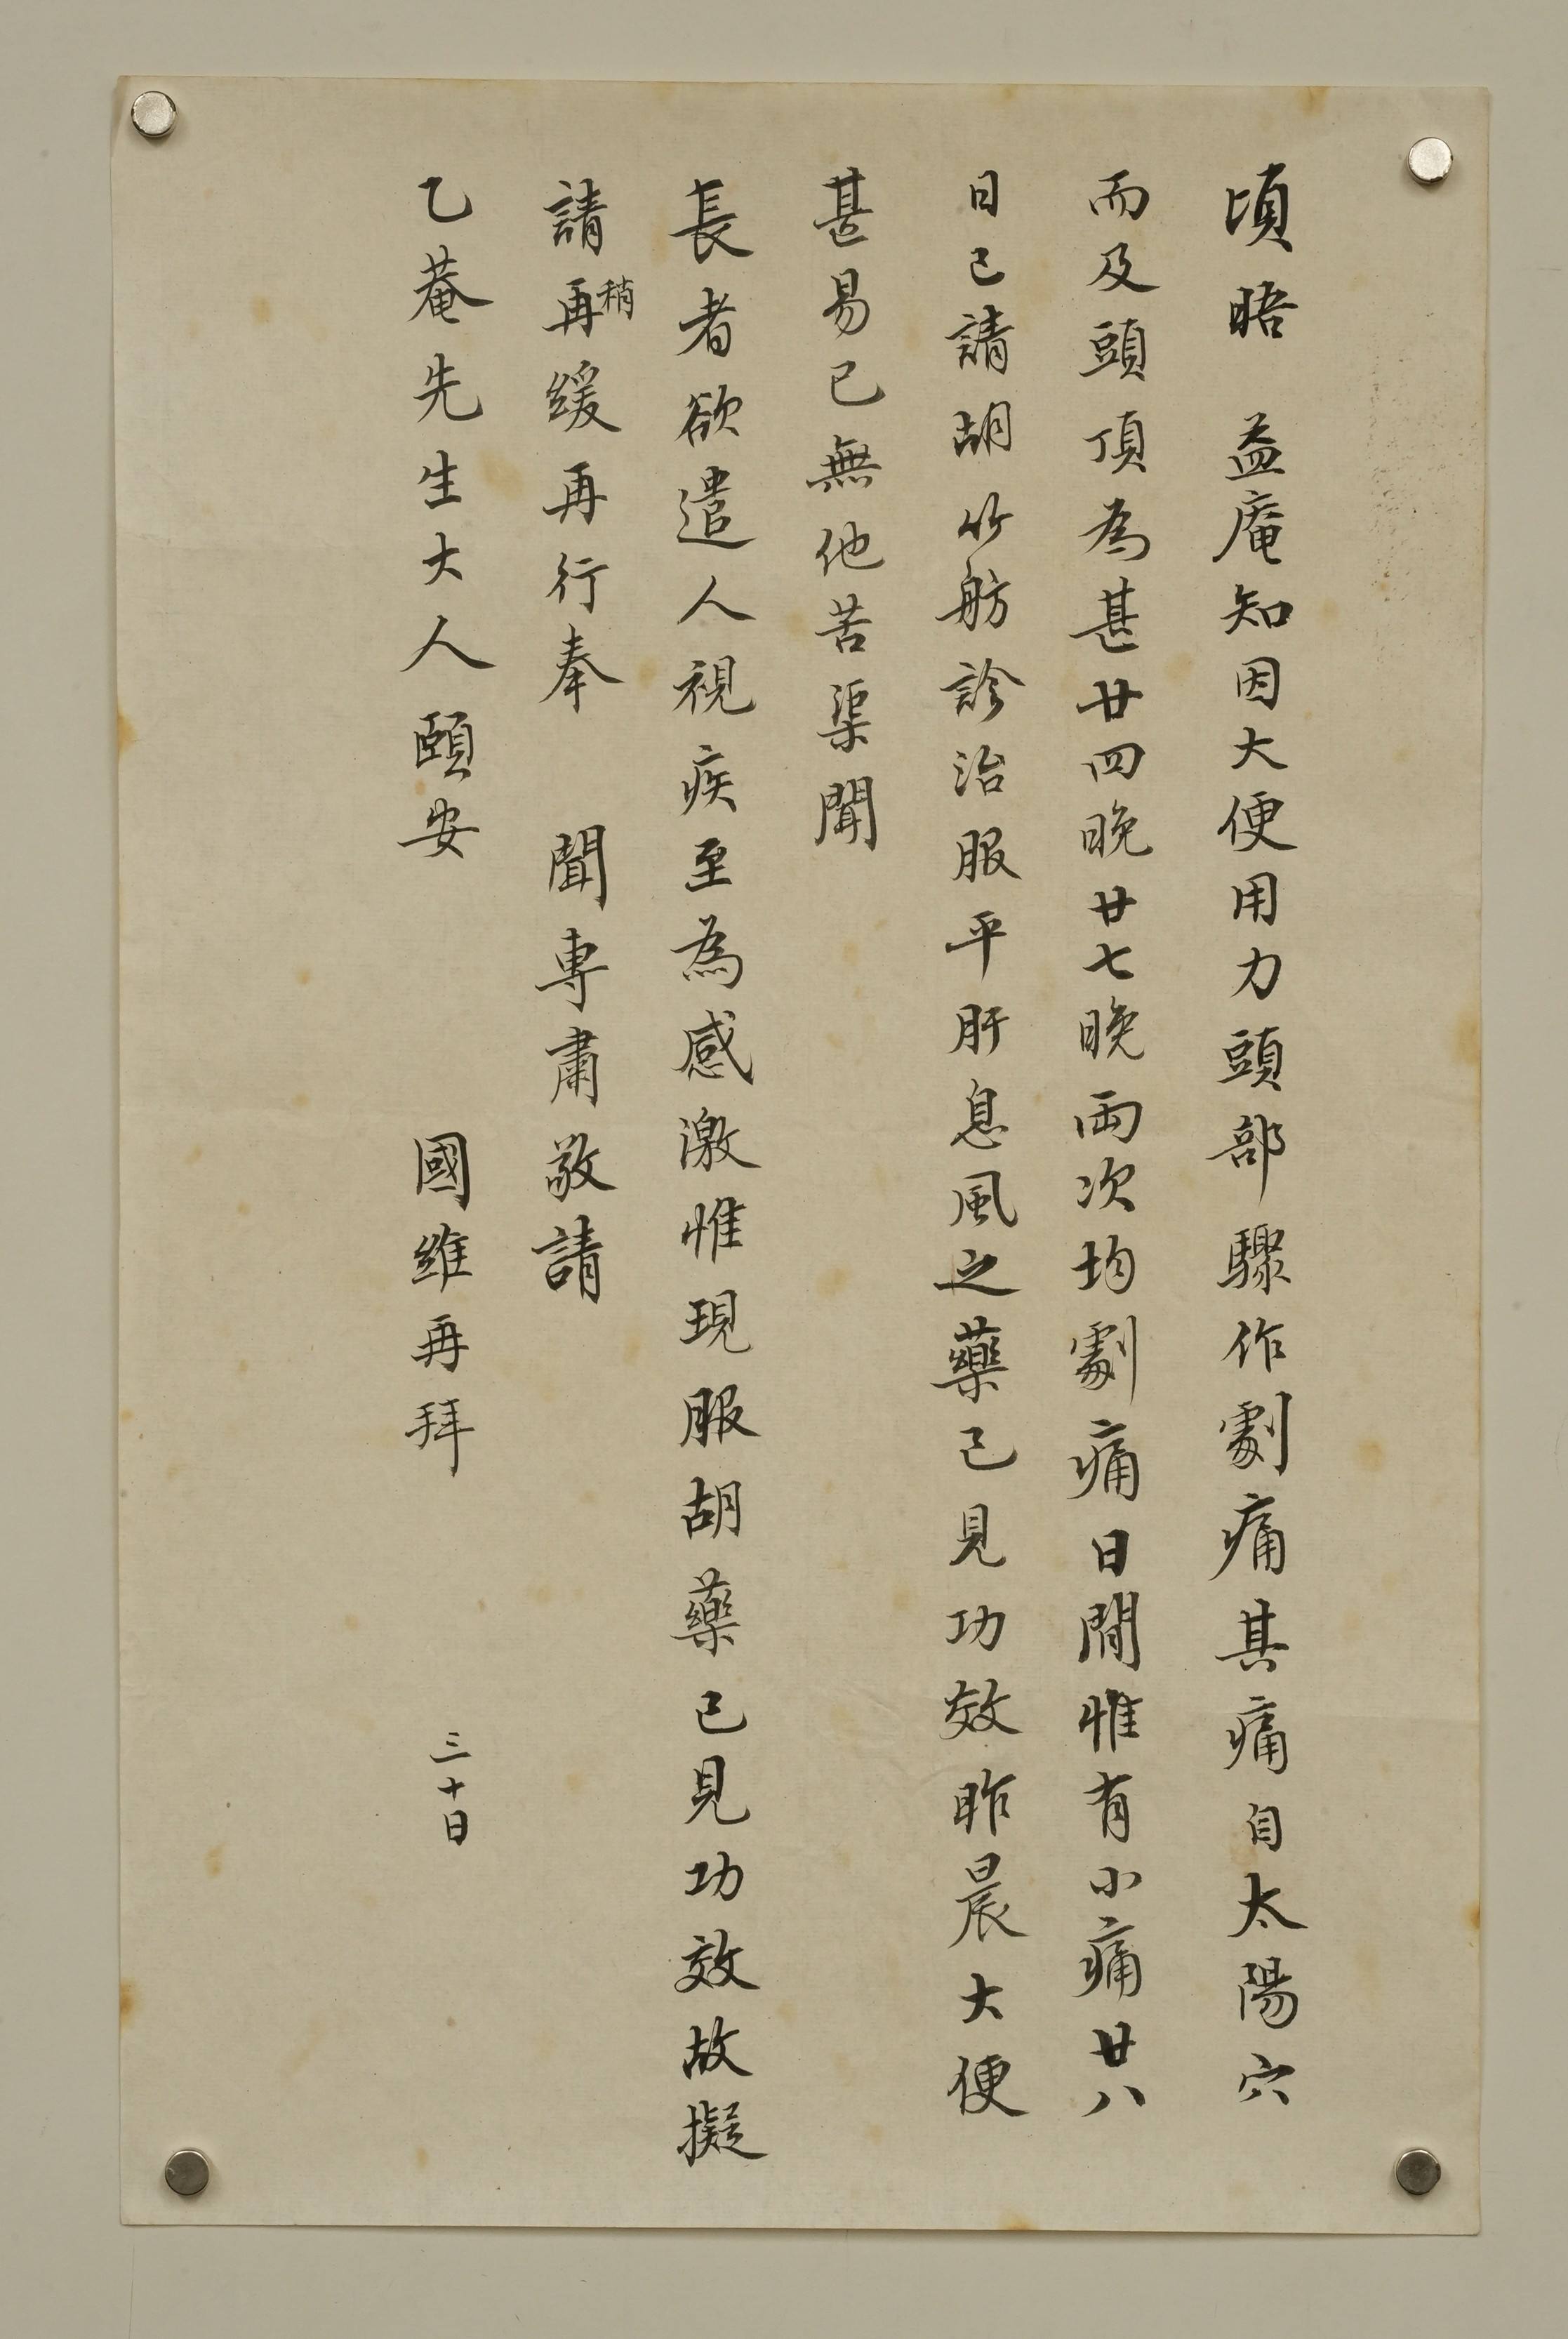 頃晤　益庵知因大便用力頭部驟作劇痛其痛自太陽穴
而及頭頂為甚廿四晚廿七晚兩次均劇痛日間惟有小痛廿八
日已請胡竹舫診治服平肝息風之藥已見功效昨晨大便
甚易已無他苦渠聞
長者欲遣人視疾至為感激惟現服胡藥已見功效故擬
請再稍緩再行奉　聞專肅敬請
乙菴先生大人頤安　國維再拜　三十日